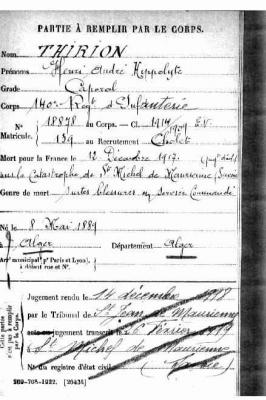 PARTIE À REMPLIR PAR LE CORPS.
Nom THIRION
Prénoms Henri André Hippolyte
Grade Caporal
Corps 140e Régt d'Infanterie
N° 18878 au Corps. — Cl. 1917 1909 E.V.
Matricule. 139 au Recrutement Cholet
Mort pour la France le 12 Décembre 1917
Catastrophe de St Michel de Maurienne (Savoie)
Genre de mort Suites blessures en service commandé
Né le 8 Mai 1889
à Alger Département Alger
Arrt municipal (pr Paris et Lyon),
à défaut rue et N°.
Cette partie n'est pas à remplir par le Corps.
Jugement rendu le 14 décembre 1918
par le Tribunal de St Jean de Maurienne
jugement transcrit le 26 Février 1919
à St Michel de Maurienne
N° du registre d'état civil (Savoie)